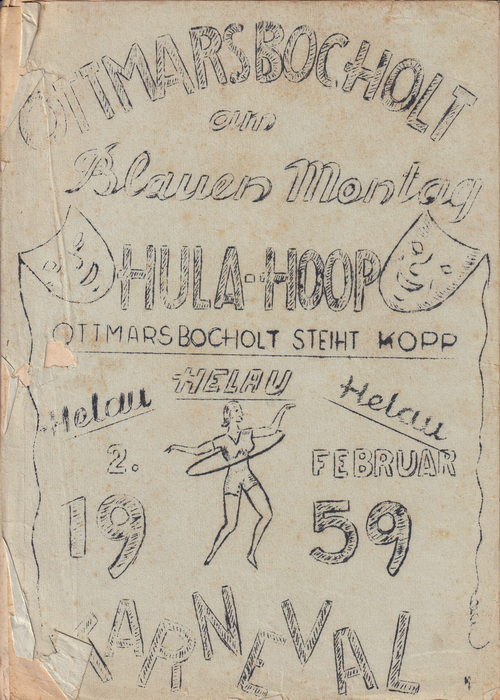 OTTMARSBOCHOLT
am
Blauen Montag
HULA-HOOP
OTTMARSBOCHOLT STEIHT KOPP
Helau HELAU Helau
2. FEBRUAR
19 59
KARNEVAL